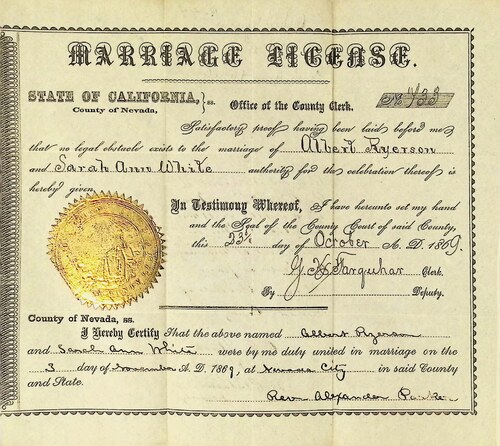 MARRIAGE LICENSE.
STATE OF CALIFORNIA, } ss. Office of the County Clerk. No. 433
County of Nevada,
Satisfactory proof having been laid before me,
that no legal obstacle exists to the marriage of Albert Ryerson
and Sarah Ann White authority for the celebration thereof is
hereby given.
In Testimony Whereof, I have hereunto set my hand
and the Seal of the County Court of said County,
this 23d day of October A. D. 1869.
G. K. Farquhar Clerk.
By Deputy.
County of Nevada, ss.
I Hereby Certify That the above named Albert Ryerson
and Sarah Ann White were by me duly united in marriage on the
3 day of November A. D. 1869, at Nevada City in said County
and State.
Rev. Alexander Parker